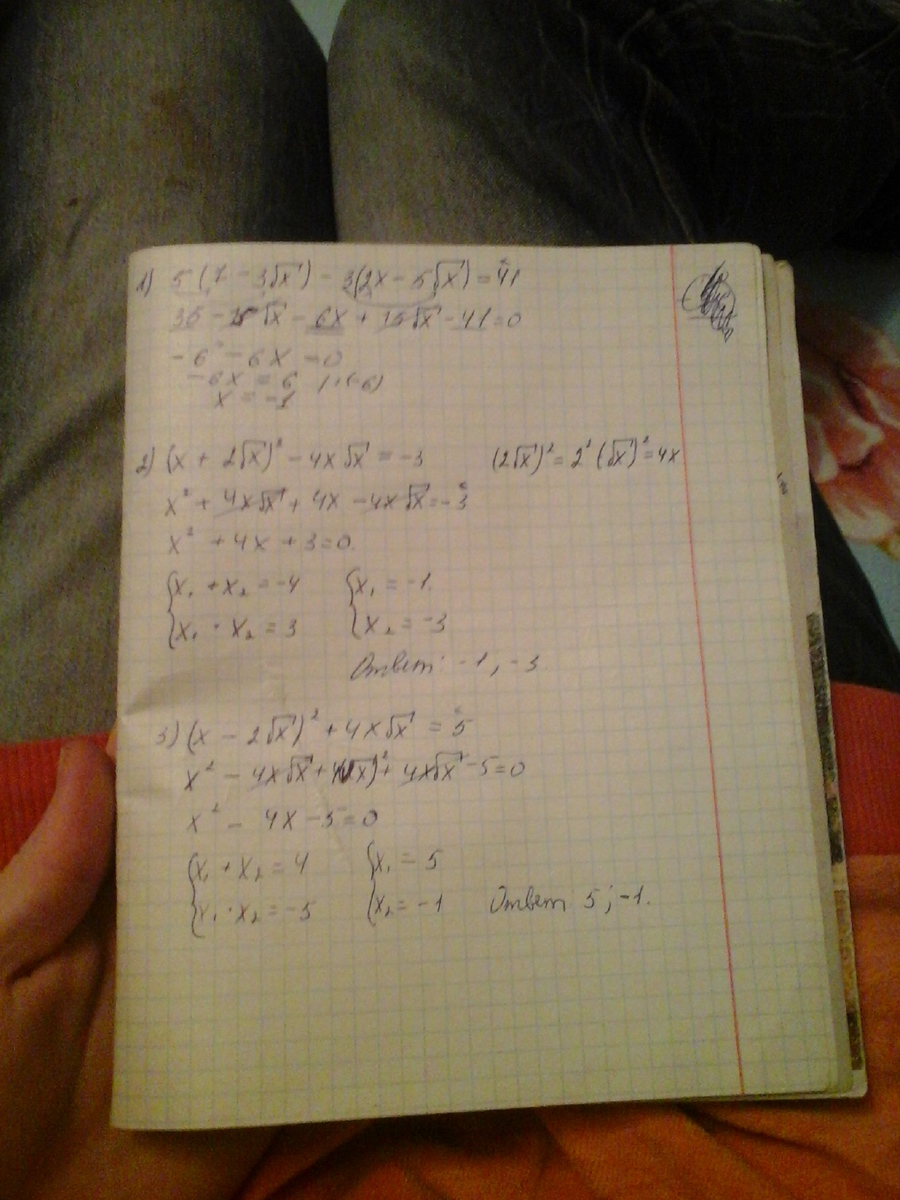 1) 5(7 - 3√x) - 3(2x - 5√x) = 41
35 - 15√x - 6x + 15√x - 41 = 0
-6 - 6x = 0
-6x = 6 | : (-6)
x = -1
2) (x + 2√x)² - 4x√x = -3 (2√x)² = 2² (√x)² = 4x
x² + 4x√x + 4x - 4x√x = -3
x² + 4x + 3 = 0.
{x₁ + x₂ = -4 {x₁ = -1.
{x₁ · x₂ = 3 {x₂ = -3
Ответ: -1, -3
3) (x - 2√x)² + 4x√x = 5
x² - 4x√x + + 4x√x - 5 = 0
x² - 4x - 5 = 0
{x₁ + x₂ = 4 {x₁ = 5
{x₁ · x₂ = -5 {x₂ = -1 Ответ: 5; -1.